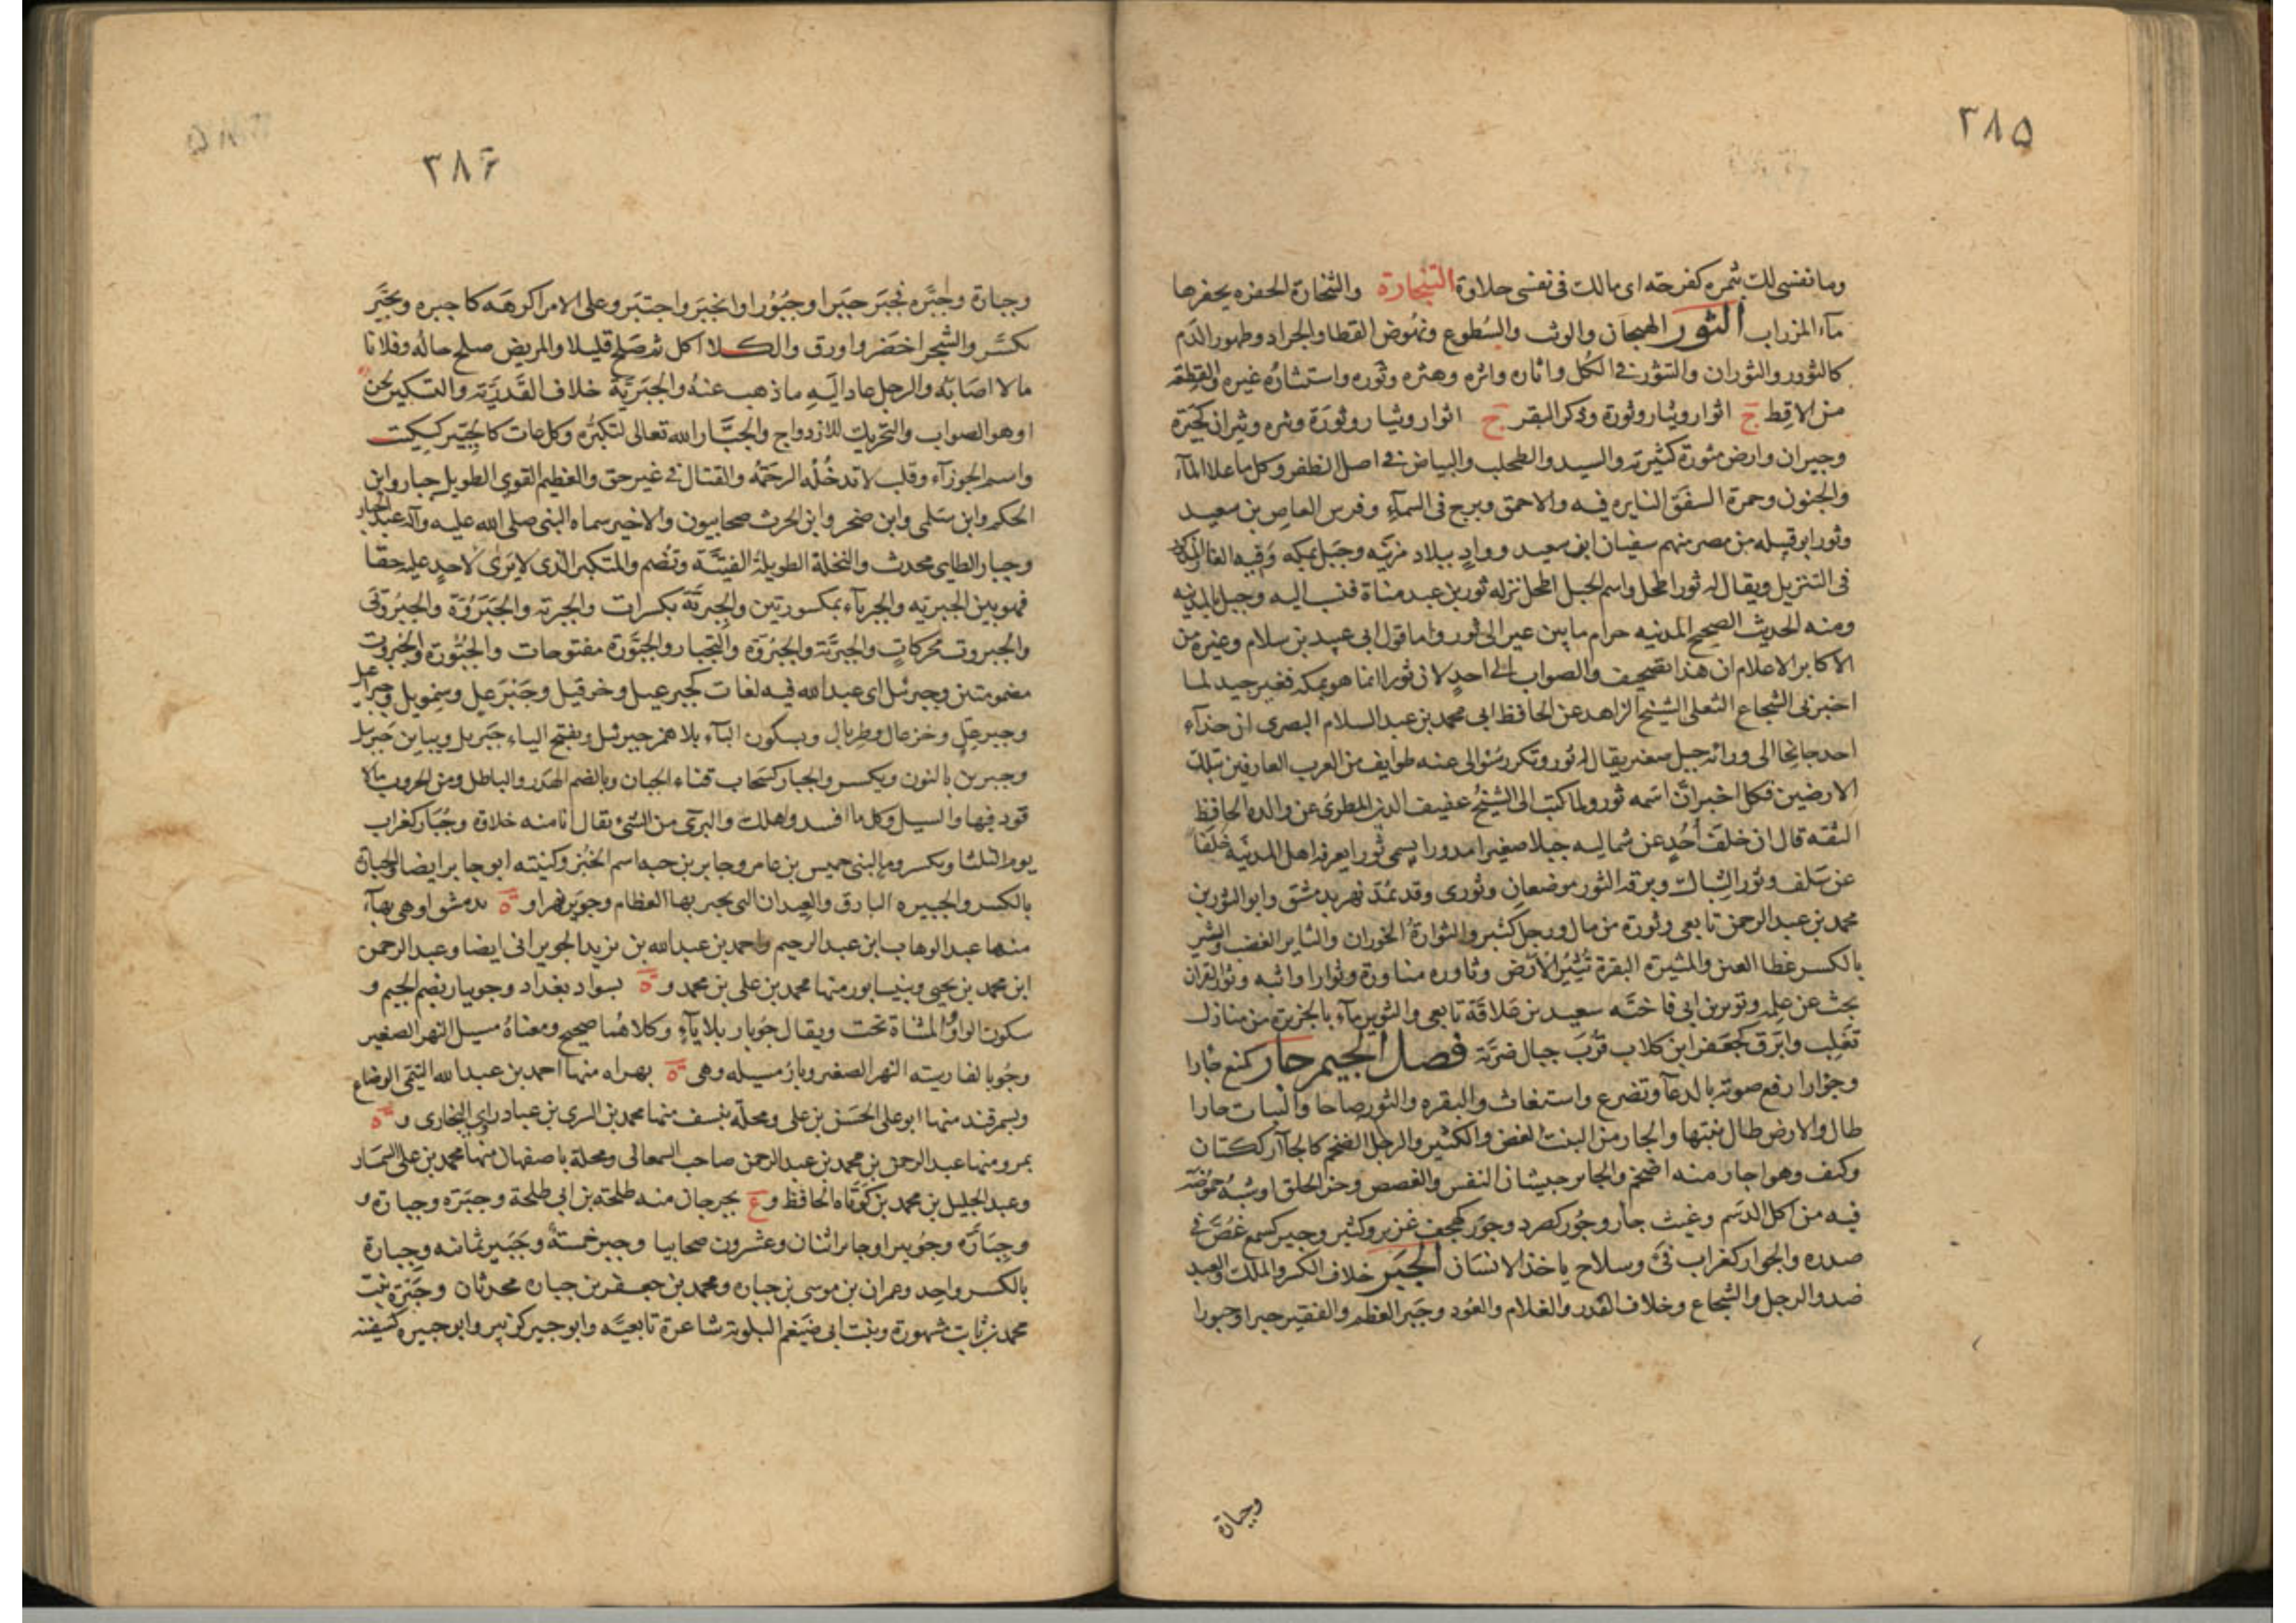 ٣٨٥
وما نفسى لك بثمره كفرحه اى مالك فى نفسى حلاوة الثنجارة والثنجارة الحفره يحفرها
ماء المزراب الثور الهيجان والوثب والسطوع ونهوض القطا والجراد وظهور الدم
كالثوور والثوران والتثور فى الكل واثاره واثره وهثره وثوره واستثاره غيره والقطعة
من الاقط ج اثوار وثيار وثورة وذكر البقر ج اثوار وثيار وثورة وثيره وثيران كجيرة
وجيران وارض مثورة كثيرته والسيد والطحلب والبياض فى اصل الظفر وكل ما علا الماء
والجنون وحمرة الشفق النايره فيه والاحمق وبرج فى السماء وفرس العاص بن سعيد
وثور ابو قبيله من مضر منهم سفيان ابن سعيد وواد ببلاد مزينه وجبل بمكه وفيه الغار المذكور
فى التنزيل ويقال له ثور اطحل واسم الجبل اطحل نزله ثور بن عبد مناة فنسب اليه وجبل بالمدينه
ومنه الحديث الصحيح المدينه حرام ما بين عير الى ثور واما قول ابى عبيد بن سلام وغيره من
الاكابر الاعلام ان هذا تصحيف والصواب الى احد لان ثورا انما هو بمكه فغير جيد لما
اخبرنى الشجاع الثعلى الشيخ الزاهد عن الحافظ ابى محمد بن عبد السلام البصرى ان حذاء
احد جانحا الى ورائه جبل صغير يقال له ثور وتكرر سؤالى عنه طوايف من العرب العارفين بتلك
الارضين فكل اخبر ان اسمه ثور ولما كتب الى الشيخ عفيف الدين المطرى عن والده الحافظ
الثقه قال ان خلف احد عن شماليه جبلا صغيرا مدورا يسمى ثورا يعرفه اهل المدينه خلفا
عن سلف وثور الشباك وبرقه الثور موضعان وثورى وقد تمد نهر بدمشق وابو الثورين
محمد بن عبد الرحمن تابعى وثورة من مال ورجل كثير والثوارة الخوران والثاير الغضب والثير
بالكسر غطا العين والمثيرة البقرة تثير الارض وثاوره مثاورة وثوارا واثبه وثور القران
بحث عن علمه وثوير بن ابى فاخته سعيد بن علاقة تابعى والثوير ماء بالجزيرة من منازل
تغلب وابرق كجعفر ابن كلاب قرب جبال ضرية فصل الجيم جار كمنع جارا
وجؤارا رفع صوته بالدعا وتضرع واستغاث والبقره والثور صاحا والنبات جارا
طال والارض طال نبتها والجار من النبت الغض والكثير والرجل الضخم كالجآر ككتان
وكتف وهو اجار منه اضخم والجاير جيشان النفس والغصص وحز الحلق او شبه حموضة
فيه من اكل الدسم وغيث جأر وجؤر كصرد وجور كهجف غزير وكثير وجير كسمع غص فى
صدره والجوار كغراب قى وسلاح ياخذ الانسان الجبر خلاف الكسر والملك والعبد
ضد والرجل والشجاع وخلاف القدر والغلام والعود وجبر العظم والفقير جبرا وجبورا
وجبارة
٣٨۶
وجبارة وجبره فجبر جبرا وجبورا وانجبر واجتبر وعلى الامر اكرهه كاجبره وتجبر
تكبر والشجر اخضر واورق والكلا اكل ثم صلح قليلا والمريض صلح حاله وفلانا
مالا اصابه والرجل عاد اليه ما ذهب عنه والجبرية خلاف القدرية والتسكين لحن
او هو الصواب والتحريك للازدواج والجبار الله تعالى لتكبره وكل عات كالجبير كسكيت
واسم الجوزاء وقلب لا تدخله الرحمة والقتال فى غير حق والعظيم القوى الطويل جبار وابن
الحكم وابن سلمى وابن صخر وابن الحرث صحابيون والاخير سماه النبى صلى الله عليه وآله عبد الجبار
وجبار الطايى محدث والنخلة الطويلة الفتية وتضم والمتكبر الذى لا يرى لاحد عليه حقا
فهو بين الجبريه والجرياء بمكسورتين والجبرية بكسرات والجبرية والجبروة والجبروتى
والجبروت محركات والجبرية والجبروة والتجبار والجبورة مفتوحات والجبورة والجبروت
مضمومتين وجبرئل اى عبد الله فيه لغات كجبرعيل وخزقيل وجبرعل وسمويل وجبراعل
وجبرعل وخزعال وطربال وبسكون الياء بلا همز جبريل وبفتح الياء جبريل وبياين جبريل
وجبرين بالنون ويكسر والجبار كسحاب فناء الجبان وبالضم الهدر والباطل ومن الحروب ما لا
قود فيها والسيل وكل ما افسد واهلك والبرى من الشى يقال انا منه خلاوة وجبار كغراب
يوم الثلثا ويكسر وما لبنى حميس بن عامر وجابر بن حبه اسم الخبز وكنيته ابو جابر ايضا والجبارة
بالكسر والجبيره اليارق والعيدان التى يجبر بها العظام وجوبر نهر او ة بدمشق او هى بهاء
منها عبد الوهاب ابن عبد الرحيم واحمد بن عبد الله بن يزيد الجوبرانى ايضا وعبد الرحمن
ابن محمد بن يحيى وبنيسابور منها محمد بن على بن محمد و ة بسواد بغداد وجويبار بضم الجيم و
سكون الواو والمثناة تحت ويقال جوبار بلا ياء وكلاهما صحيح ومعناه مسيل النهر الصغير
وجوى بالفارسيه النهر الصغير وبار مسيله وهى ة بهراه منها احمد بن عبد الله التيمى الوضاع
وبسمرقند منها ابو على الحسن بن على ومحلة بنسف منها محمد بن السرى بن عباد راى البخارى و ة
بمرو منها عبد الرحمن بن محمد بن عبد الرحمن صاحب السمعانى ومحلة باصفهان منها محمد بن على السمسار
وعبد الجليل بن محمد بن كوتاه الحافظ و ع بجرجان منه طلحة بن ابى طلحة وجبرة وجبارة و
وجبارة وجويبر او جابر اثنان وعشرون صحابيا وجبر خمسة وجبير ثمانه وجبارة
بالكسر واحد وعمران بن موسى بن جباره ومحمد بن جعفر بن جباره محدثان وجبرة بنت
محمد بن ثابت شهورة وبنت ابى ضيغم البلوية شاعرة تابعية وابو جبير كزبير وابو جبيره كسفينة